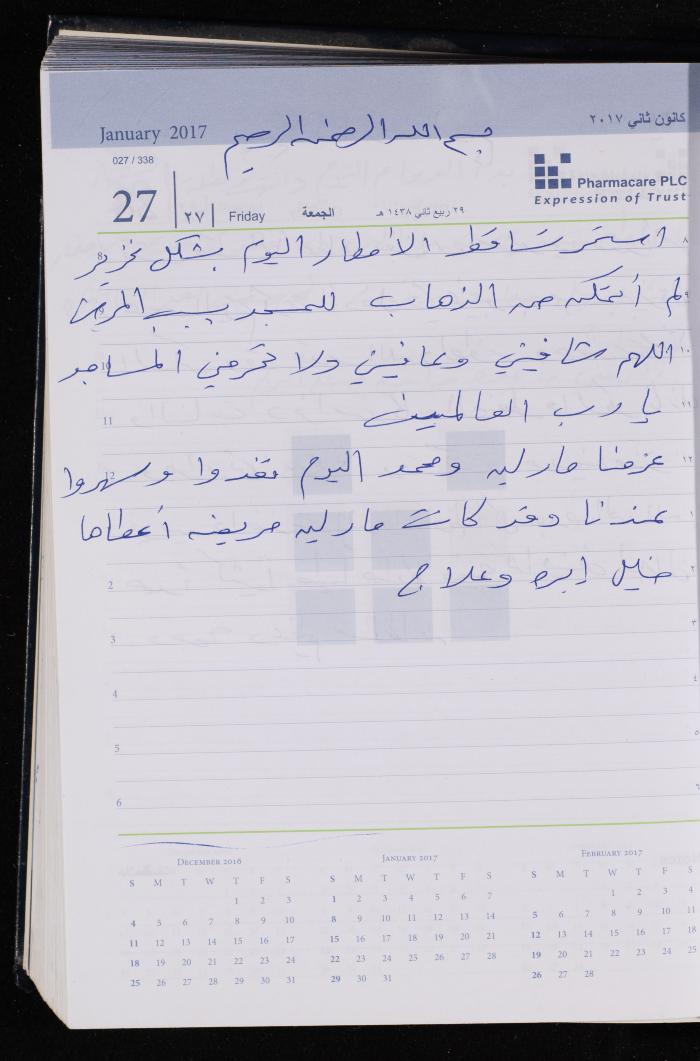 January 2017
بسم الله الرحمن الرحيم
كانون ثاني ٢٠١٧
027 / 338
27
٢٧
Friday
الجمعة
٢٩ ربيع ثاني ١٤٣٨ هـ
Pharmacare PLC
Expression of Trust
استمر تساقط الأمطار اليوم بشكل غزير
لم أتمكن من الذهاب للمسجد بسبب المرض
اللهم شافيني وعافيني ولا تحرمني المساجد
يا رب العالمين
عزمنا مارلين ومحمد اليوم تغدوا وسهروا
عندنا وقد كانت مارلين مريضه أعطاها
ابره وعلاج
8
10
11
12
2
3
4
5
6
٨
٩
١٠
١١
١٢
١
٢
٣
٤
٥
٦
December 2016
S M T W T F S
1 2 3
4 5 6 7 8 9 10
11 12 13 14 15 16 17
18 19 20 21 22 23 24
25 26 27 28 29 30 31
January 2017
S M T W T F S
1 2 3 4 5 6 7
8 9 10 11 12 13 14
15 16 17 18 19 20 21
22 23 24 25 26 27 28
29 30 31
February 2017
S M T W T F S
1 2 3 4
5 6 7 8 9 10 11
12 13 14 15 16 17 18
19 20 21 22 23 24 25
26 27 28